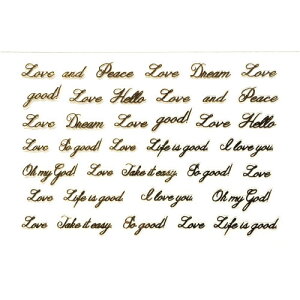 Love and Peace Love Dream Love
good! Love Hello Love and Peace
Love Dream Love good! Love Hello
Love So good! Love Life is good I love you
Oh my God! Love Take it easy So good! Love
Love Life is good I love you Oh my God!
Love Take it easy So good! Love Life is good